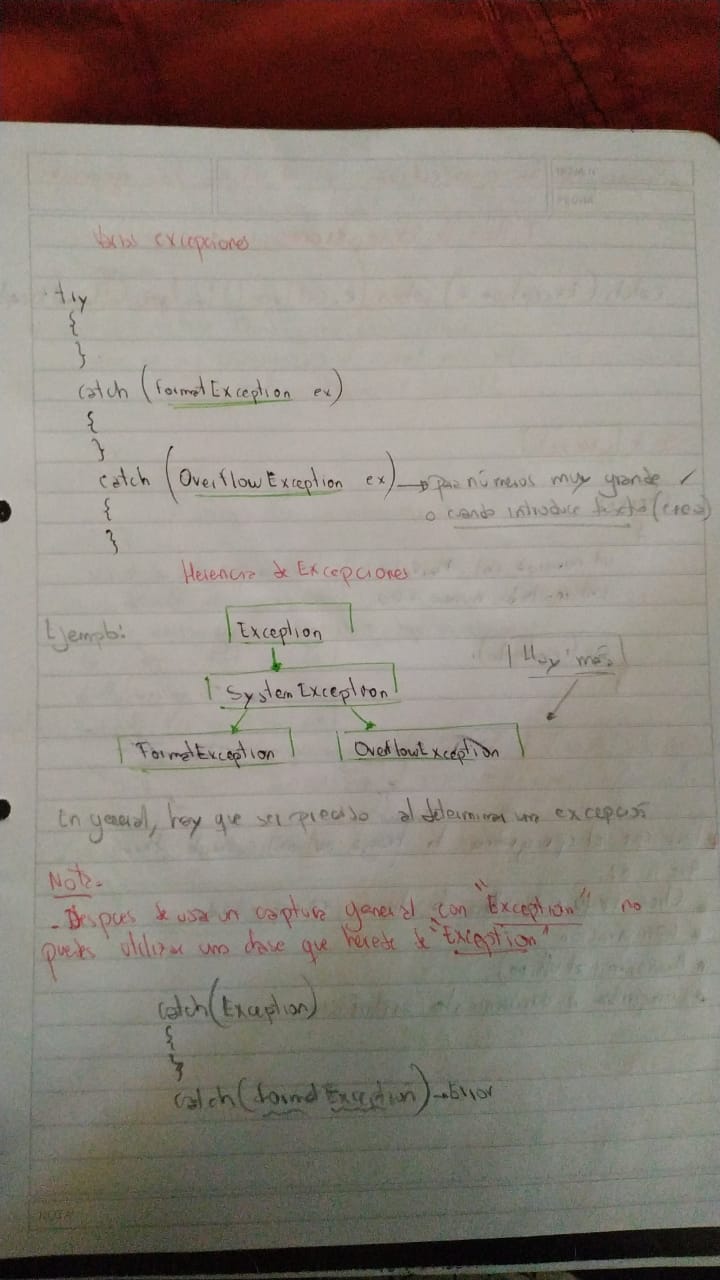 Varias excepciones
try
{
}
catch (FormatException ex)
{
}
catch (OverflowException ex) → para números muy grande
{ o cuando introduce (creo)
}
Herencia de Excepciones
Ejemplo:
Exception
SystemException
Hay más
FormatException OverflowException
En general, hay que ser preciso al determinar una excepción
Nota.
- Después de usar un captura general con "Exception" no
puedes utilizar una clase que herede de "Exception"
catch(Exception)
{
}
catch(FormatException) → Error
NOTA